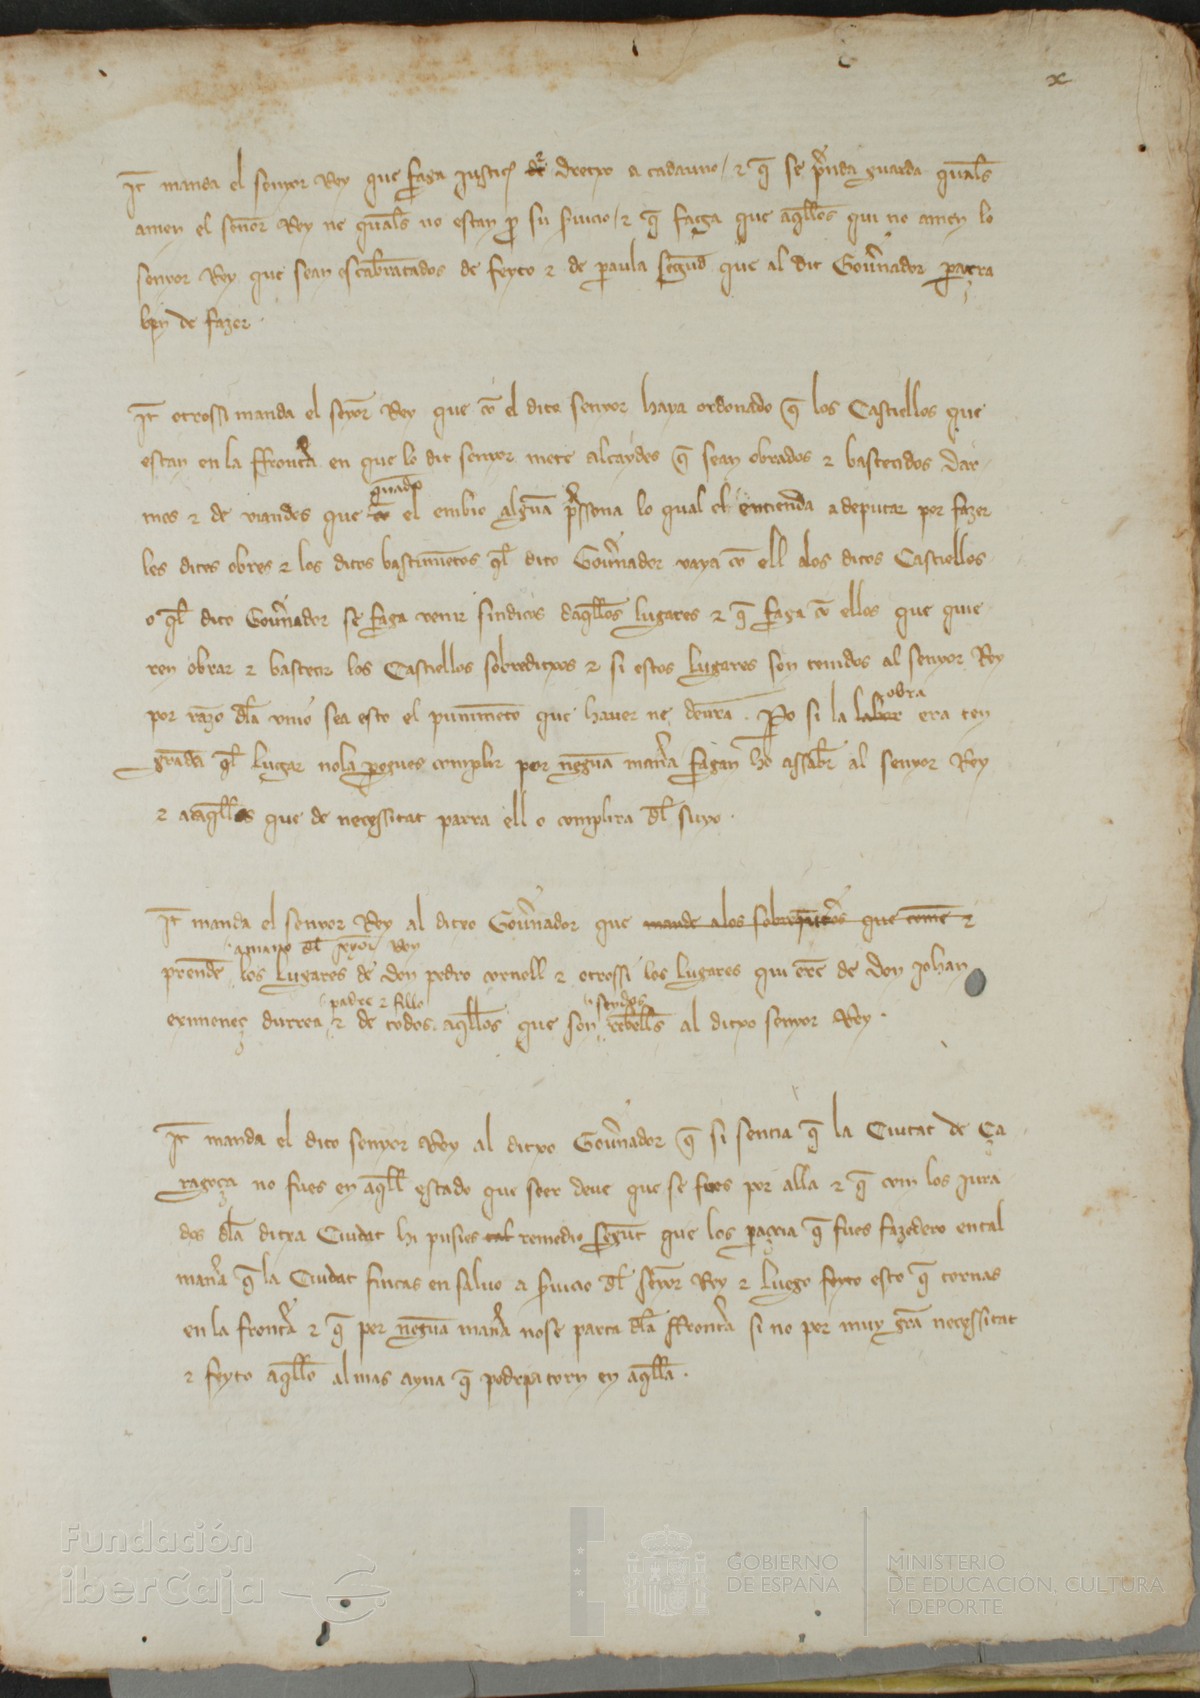 x
It manda el senyor Rey que faga justicia dretxo a cadauno / ⁊ q̄ se prenda guarda quals
amen el señor Rey ne quals no estan ꝑ su seruicio / ⁊ q̄ faga que aqllos qui no amen lo
senyor Rey que sean scabratados de feyto ⁊ de paula segund que al dit Gouernador parra
bn de fazer ·
It otrossi manda el senyor Rey que co el dito senyor haya ordonado q̄ los Castiellos que
estan en la ffrontera en que lo dit senyor mete alcaydes q̄ sean obrados ⁊ bastecidos dar
quando
mes ⁊ de viandes que el embio alguna perssona lo qual el entienda a deputar por fazer
les dites obres ⁊ los ditos bastimentos ql dito Gouernador vaya co ell alos ditos Castiellos
o ql dito Gouernador se faga venir sindicos daqllos lugares ⁊ q̄ faga co ellos que quie
ren obrar ⁊ bastecir los Castiellos sobreditxos ⁊ si estos lugares son tenidos al senyor Rey
obra
por razo dla unio sea esto el punimiento que hauer ne deura · Pero si la labor era ten
granda ql lugar nola pogues complir por neguna manera fagan ho assaber al senyor Rey
⁊ adaqllos que de necessitat parra ell o complira dl suyo ·
It manda el senyor Rey al ditxo Gouernador que mande alos sobrejunteros que ⁊
amano dl senyor Rey
prende los lugares de don pedro cornell ⁊ otrossi los lugares qui ere de don Johan
padre ⁊ fillo seydos
exemeneç durrea ⁊ de todos aqllos que son rebells al ditxo senyor Rey ·
It manda el dito senyor Rey al ditxo Gouernador q̄ si sentia q̄ la Ciutat de Ça
ragoça no fues en aqll estado que seer deue que se fues por alla ⁊ q̄ com los jura
dos dla ditxa Ciudat hi pusies tal remedio segunt que los parria q̄ fues fazedero en tal
manera q̄ la Ciudat fincas en saluo a seruicio dl senyor Rey ⁊ luego feyto esto q̄ tornas
en la frontera ⁊ q̄ per neguna manera nose parta dla ffrontera si no por muy gran necessitat
⁊ feyto aqllo al mas ayna q̄ podra torn en aqlla ·
Fundación
iberCaja
GOBIERNO
DE ESPAÑA
MINISTERIO
DE EDUCACIÓN, CULTURA
Y DEPORTE